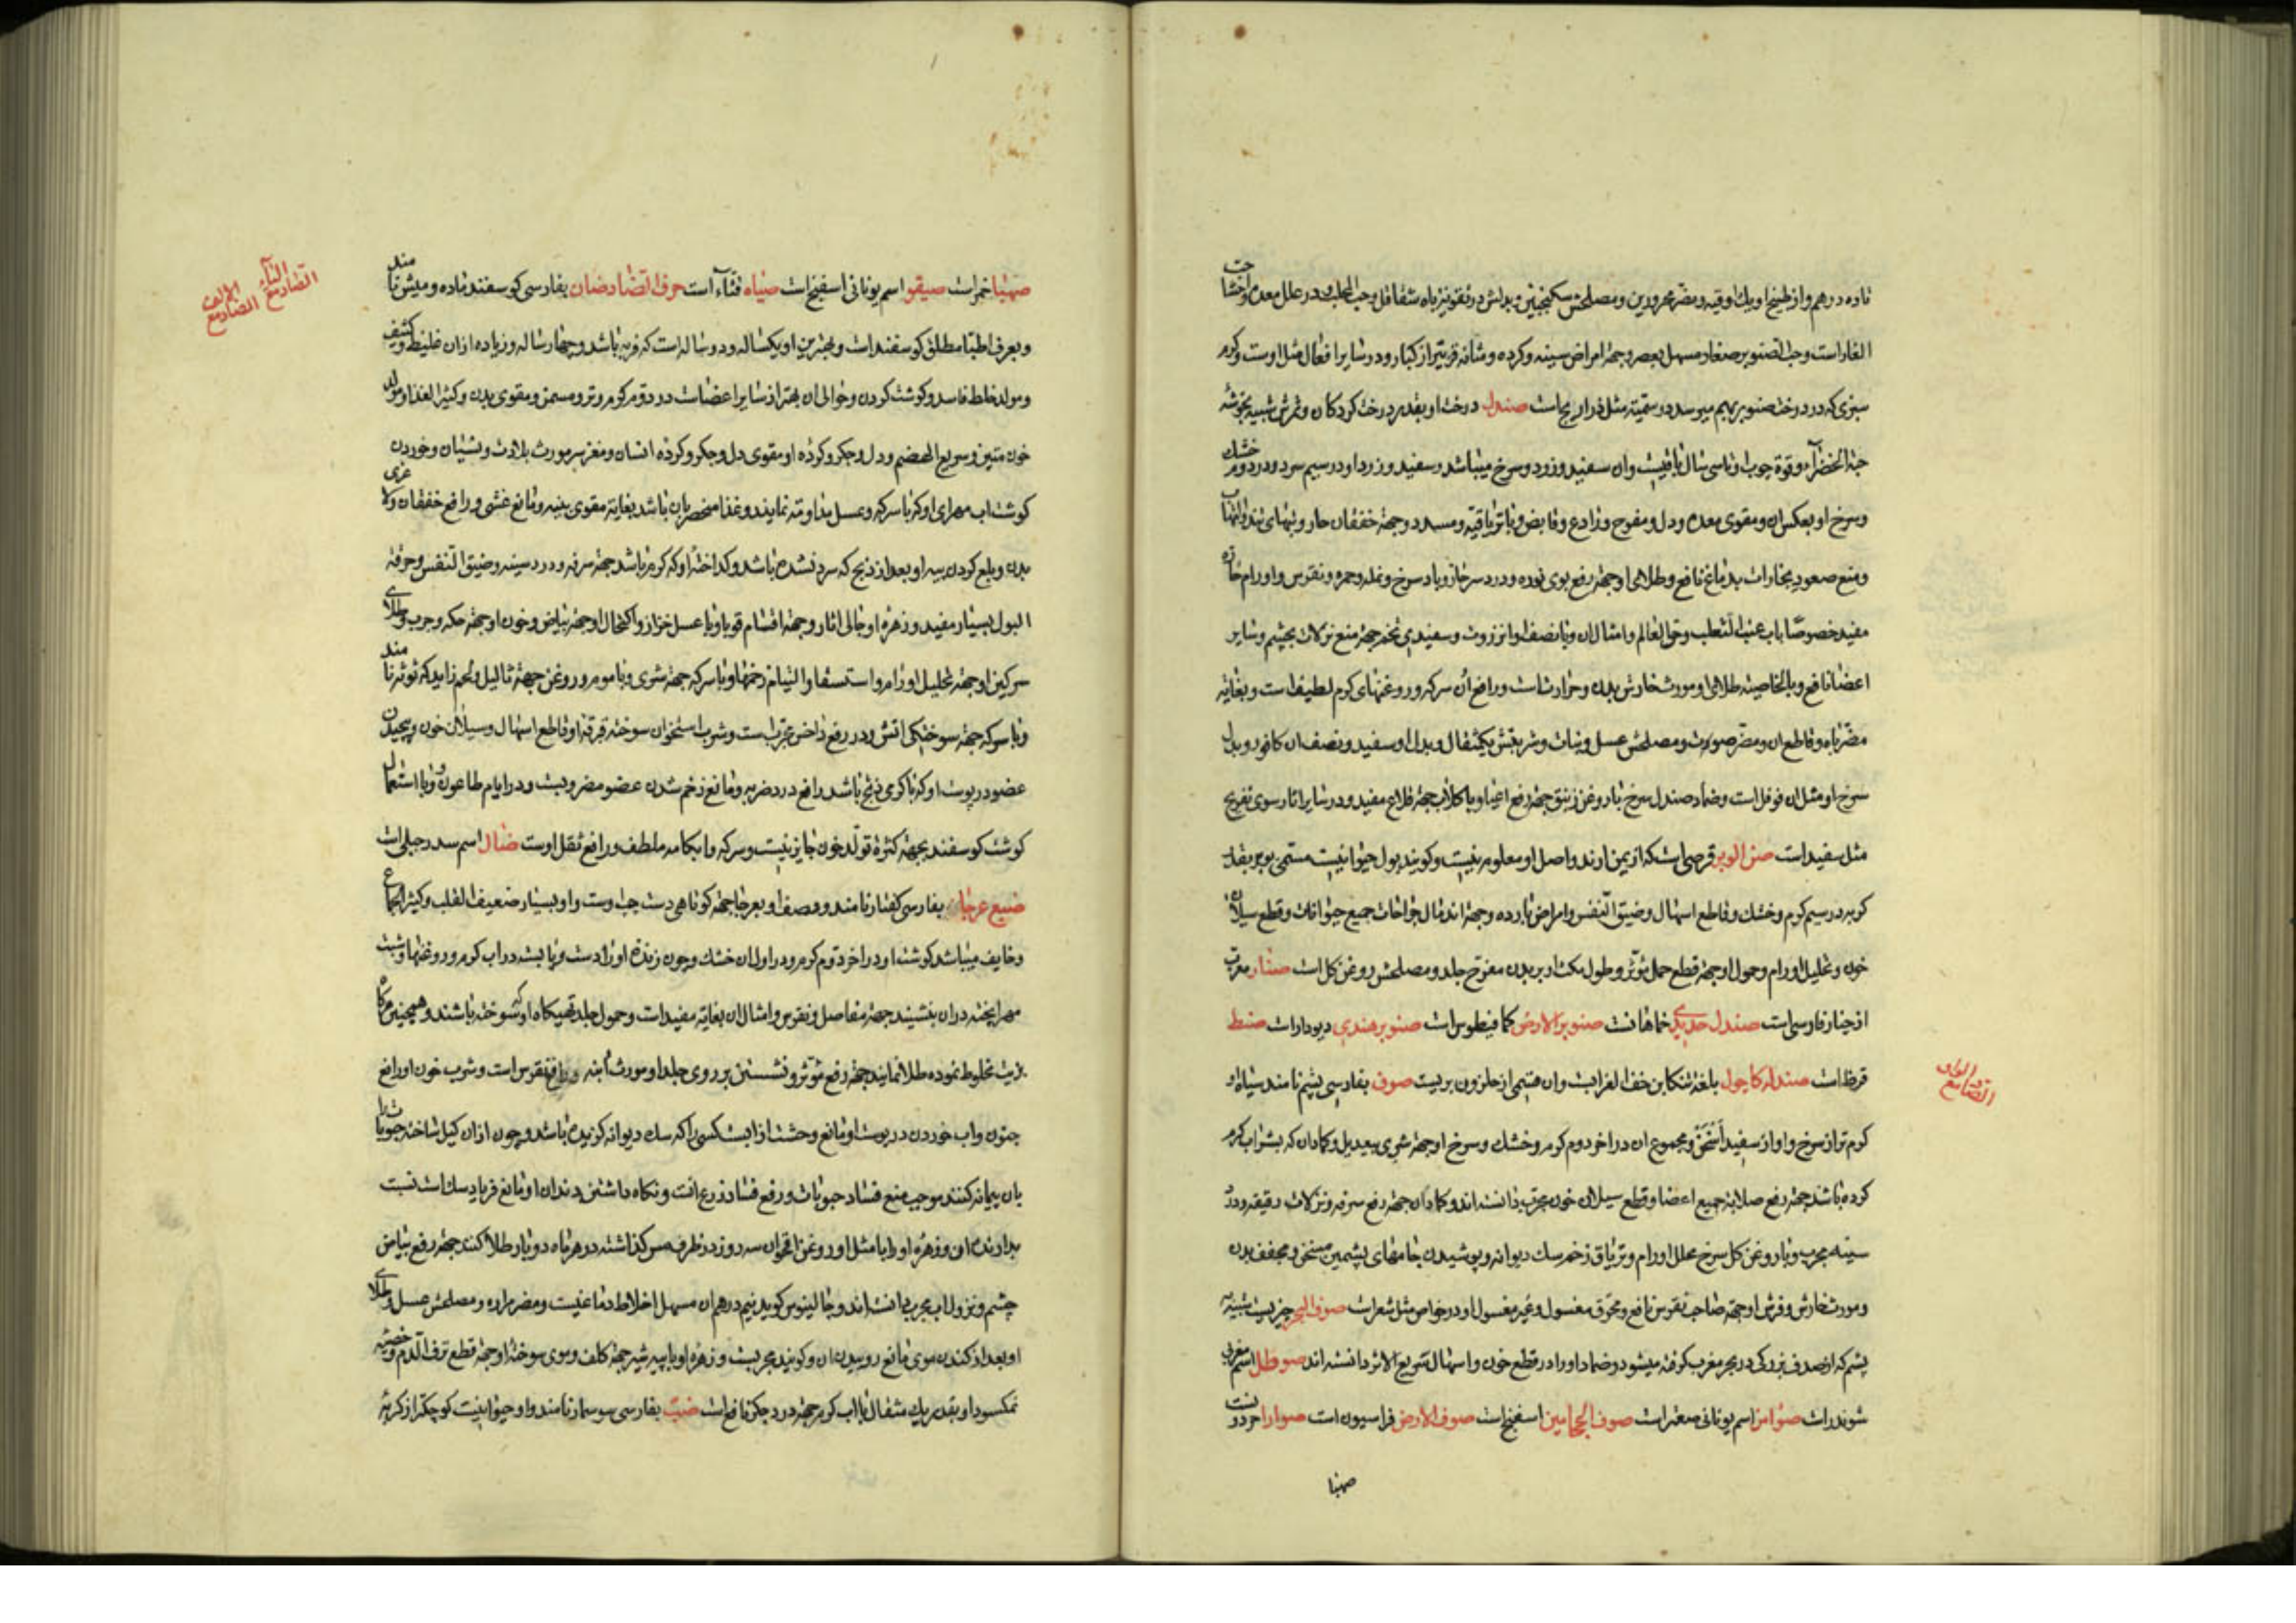 تا ده درهم و از طبیخ او یک اوقیه و مضر محرورین و مصلحش سکنجبین و بدلش در تقویت باه شقاقل و حب المحلب و در علل معده و احشا حب
الغار است و حب الصنوبر صغار مسهل بعصر و جهة امراض سینه و کرده و مثانه قویتر از کبار و در سایر افعال مثل اوست و کرم
سبزی که در درخت صنوبر بهم میرسد در سمیّة مثل ذراریح است صندل درخت او بقدر درخت کردکان و ثمرش شبیه بخوشه
حبة الخضرا و قوة چوب او تا سی سال باقیست و ان سفید و زرد و سرخ میباشد و سفید و زرد او در سیم سرد و در دوم خشک
و سرخ او بعکس ان و مقوی معده و دل و مفرح و رادع و قابض و با تریاقیة و مسدد و جهة خفقان حار و تبهای تند و التهاب
و منع صعود بخارات بدماغ نافع و طلای او جهة رفع بوی نوره و درد سر حار و باد سرخ و نمله و حمره و نقرس و اورام حاره
مفید خصوصًا باب عنب الثعلب و حی العالم و امثال ان و با نصف او انزروت و سفیدی تخم جهة منع نزلات بچشم و سایر
اعضا نافع و بالخاصیة طلای او مورث خارش بدن و حرارتست و رافع ان سرکه و روغنهای کرم لطیف است و بغایة
مضر باه و قاطع ان و مضر صوت و مصلحش عسل و نبات و شربتش یکمثقال و بدل او سفید و نصف ان کافور و بدل
سرخ او مثل ان فوفل است و ضماد صندل سرخ با روغن زنبق جهة رفع اعیا و با کلاب جهة قلاع مفید و در سایر اثار سوی تفریح
مثل سفید است صن الوبر قرصی است که از یمن ارند و اصل او معلوم نیست و کویند بول حیوانیست مسمی بوبر بقدر
کربه در سیم کرم و خشک و قاطع اسهال و ضیق النفس و امراض بارده و جهة اندمال جراحات جمیع حیوانات و قطع سیلان
خون و تحلیل اورام و حمول او جهة قطع حمل مؤثر و طول مکث او بر بدن مقرّح جلد و مصلحش روغن کل است صنار معرب
از چنار فارسی است صندل حدیدی خماهانست صنوبر الارض کمافیطوس است صنوبر هندی دیودار است صنط
قرظ است صندله کاچول بلغة تنکابن خف الغرابست و ان قسمی از حلزون بریست صوف بفارسی پشم نامند سیاه او
کرم تر از سرخ و او از سفید اسخن و مجموع ان در اخر دوم کرم و خشک و سرخ او جهة شری بیعدیل و کماد ان که بشراب کرم
کرده باشند جهة رفع صلابة جمیع اعضا و قطع سیلان خون مجرب دانسته اند و کماد ان جهة رفع سرفه و نزلات رقیقه و درد
سینه مجرب و با روغن کل سرخ محلل اورام و تریاق زخم سک دیوانه و پوشیدن جامهای پشمین مسخن و مجفف بدن
و مورث خارش و فرش او جهة صاحب نقرس نافع و محرّق مغسول و غیر مغسول او در خواص مثل شعر است صوف البحر چیزیست شبیه به
پشم که از صدف بزرکی در بحر مغرب کرفته میشود و ضماد او را در قطع خون و اسهال سریع الاثر دانسته اند صوطل اسم مغربی
شوندر است صوامر اسم یونانی صعتر است صوف الحجامین اسفنج است صوف الارض فراسیون است صوارا حردونست
صهبا
الصاد مع الواو
صهبا خمر است صیقو اسم یونانی اسفنج است صیاه قثاء است حرف الضاد ضان بفارسی کوسفند ماده و میش نامند
و بعرف اطبا مطلق کوسفند است و بهترین او یکساله و دو ساله است که فربه باشد و چهار ساله و زیاده از ان غلیظ و کثیف
و مولد خلط فاسد و کوشت کردن و حوالی ان بهتر از سایر اعضاست در دوم کرم و تر و مسمن و مقوی بدن و کثیر الغذا و مولد
خون متین و سریع الهضم و دل و جکر و کرده او مقوی دل و جکر و کرده انسان و مغز سر مورث بلادت و نسیان و خوردن
کوشتاب مهرای او که با سرکه و عسل مداومة نمایند و غذا منحصر بان باشد بغایة مقوی بنیه و مانع غشی و رافع خفقان و لاغری
بدن و بلع کردن پیه او بعد از ذبح که سرد نشده باشد و کداخته او که کرم باشد جهة سرفه و درد سینه و ضیق النفس و حرقة
البول بسیار مفید و زهره او جالی اثار و جهة اقسام قوبا و با عسل خزاز و اکتحال او جهة بیاض و خون او جهة حکه و جرب و طلای
سرکین او جهة تحلیل اورام و استسقا و التیام زخمها و با سرکه جهة شری و با موم و روغن جهة ثالیل و لحم زاید که توثه نامند
و با سرکه جهة سوختکی اتش و در رفع داخس مجربست و شرب استخوان سوخته قرقه او قاطع اسهال و سیلان خون و پیچیدن
عضو در پوست او که با کرمی ذبح باشد رافع درد ضربه و مانع زخم شدن عضو مضروبست و در ایام طاعون و وبا استعمال
کوشت کوسفند بجهة کثرة تولد خون جایز نیست و سرکه و ابکامه ملطف و رافع ثقل اوست ضال اسم سدر جبلی است
ضبع عرجا بفارسی کفتار نامند و وصف او بعرجا جهة کوتاهی دست چپ اوست و او بسیار ضعیف القلب و کثیر الجماع
و خایف میباشد کوشت او در اخر دوم کرم و در اول ان خشک و چون زنده او را دست و پا بسته در اب کرم و روغنها و شبت
مهرا پخته در ان بنشینند جهة مفاصل و نقرس و امثال ان بغایة مفید است و حمول جلد تهیکاه او که سوخته باشند و همچنین هرکاه
بزیت مخلوط نموده طلا نمایند جهة رفع ابنه مؤثر و نشستن بر روی جلد او مورث ابنه و رافع نقرس است و شرب خون او رافع
جنون و اب خوردن در پوست او مانع وحشت از ابست کسی را که سک دیوانه کزیده باشد و چون از ان کیل ساخته حبوبات را
بان پیمانه کنند موجب منع فساد حبوبات و رفع فساد زرع انست و نکاه داشتن دندان او مانع فریاد سک است نسبت
بدارنده ان و زهره او را با مثل او روغن اقحوان سه روز در ظرف مس کذاشته در هر ماه دو بار طلا کنند جهة رفع بیاض
چشم و نزول اب مجرب دانسته اند و جالینوس کوید نیم درهم ان مسهل اخلاط دماغیست و مضر مراره و مصلحش عسل و طلای
او بعد از کندن موی مانع روییدن ان و کویند مجربست و زهره او با پیه شیر جهة کلف و موی سوخته او جهة قطع نزف الدم و خصیه
نمکسود او بقدر یک مثقال با اب کرم جهة درد جکر نافع است ضب بفارسی سوسمار نامند و او حیوانیست کوچکتر از کربه
الصاد مع الیاء
الضاد مع الالف